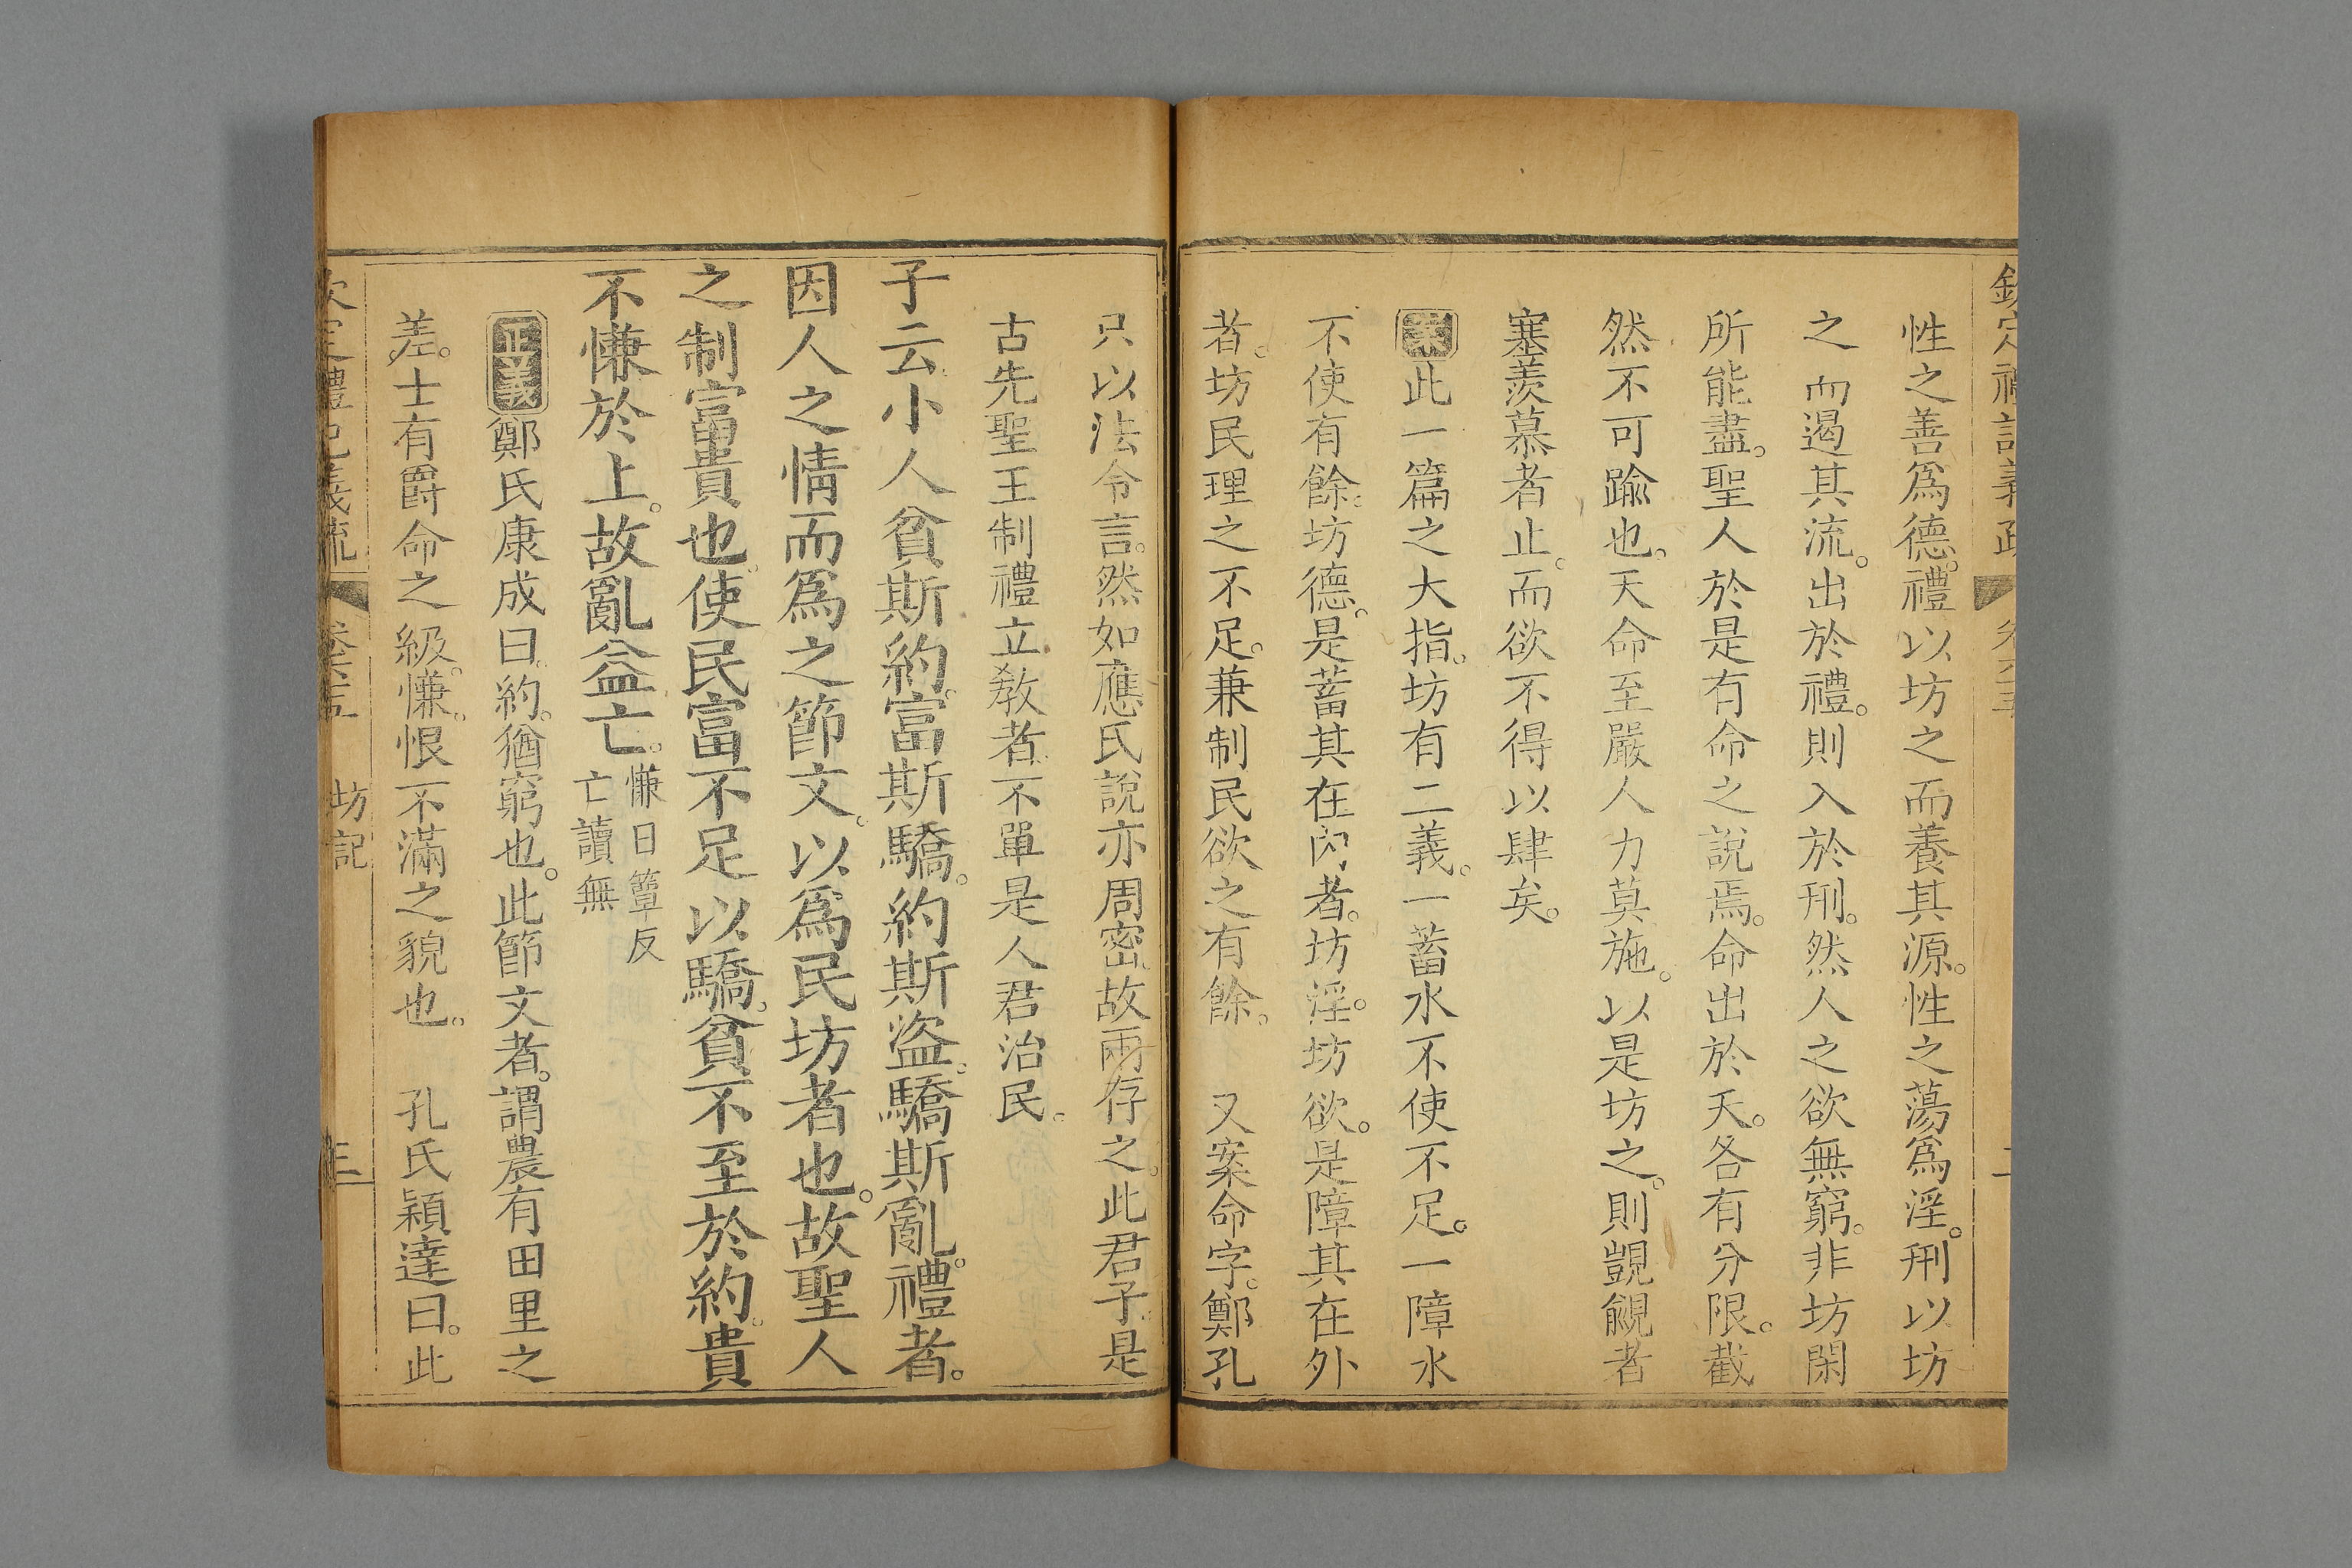 欽定禮記義疏 卷六十五 二
性之善爲德。禮以坊之而養其源。性之蕩爲淫。刑以坊
之而遏其流。出於禮。則入於刑。然人之欲無窮。非坊閑
所能盡。聖人於是有命之說焉。命出於天。各有分限。截
然不可踰也。天命至嚴人力莫施。以是坊之。則覬覦者
塞羨慕者止。而欲不得以肆矣。
案此一篇之大指。坊有二義。一蓄水不使不足。一障水
不使有餘。坊德。是蓄其在內者。坊淫。坊欲。是障其在外
者。坊民理之不足。兼制民欲之有餘。 又案命字。鄭孔
只以法令言。然如應氏說亦周密故兩存之。此君子是
古先聖王制禮立教者不單是人君治民。
子云小人貧斯約。富斯驕。約斯盜。驕斯亂。禮者。
因人之情而爲之節文。以爲民坊者也。故聖人
之制富貴也。使民富不足以驕。貧不至於約。貴
不慊於上。故亂益亡。慊日簟反
亡讀無
正義鄭氏康成曰。約。猶窮也。此節文者。謂農有田里之
差。士有爵命之級。慊。恨不滿之貌也。 孔氏穎達曰。此
欽定禮記義疏 卷六十五 坊記 三